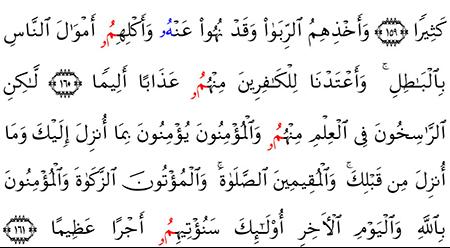 كَثِيرًا ١٥٩ وَأَخۡذِهِمُ ٱلرِّبَوٰاْ وَقَدۡ نُهُواْ عَنۡهُۥ وَأَكۡلِهِمُۥ أَمۡوَٰلَ ٱلنَّاسِ
بِٱلۡبَٰطِلِۚ وَأَعۡتَدۡنَا لِلۡكَٰفِرِينَ مِنۡهُمُۥ عَذَابًا أَلِيمًا ١٦٠ لَّٰكِنِ
ٱلرَّٰسِخُونَ فِي ٱلۡعِلۡمِ مِنۡهُمُۥ وَٱلۡمُؤۡمِنُونَ يُؤۡمِنُونَ بِمَآ أُنزِلَ إِلَيۡكَ وَمَآ
أُنزِلَ مِن قَبۡلِكَۚ وَٱلۡمُقِيمِينَ ٱلصَّلَوٰةَۚ وَٱلۡمُؤۡتُونَ ٱلزَّكَوٰةَ وَٱلۡمُؤۡمِنُونَ
بِٱللَّهِ وَٱلۡيَوۡمِ ٱلۡأٓخِرِ أُوْلَٰٓئِكَ سَنُؤۡتِيهِمُۥ أَجۡرًا عَظِيمًا ١٦١